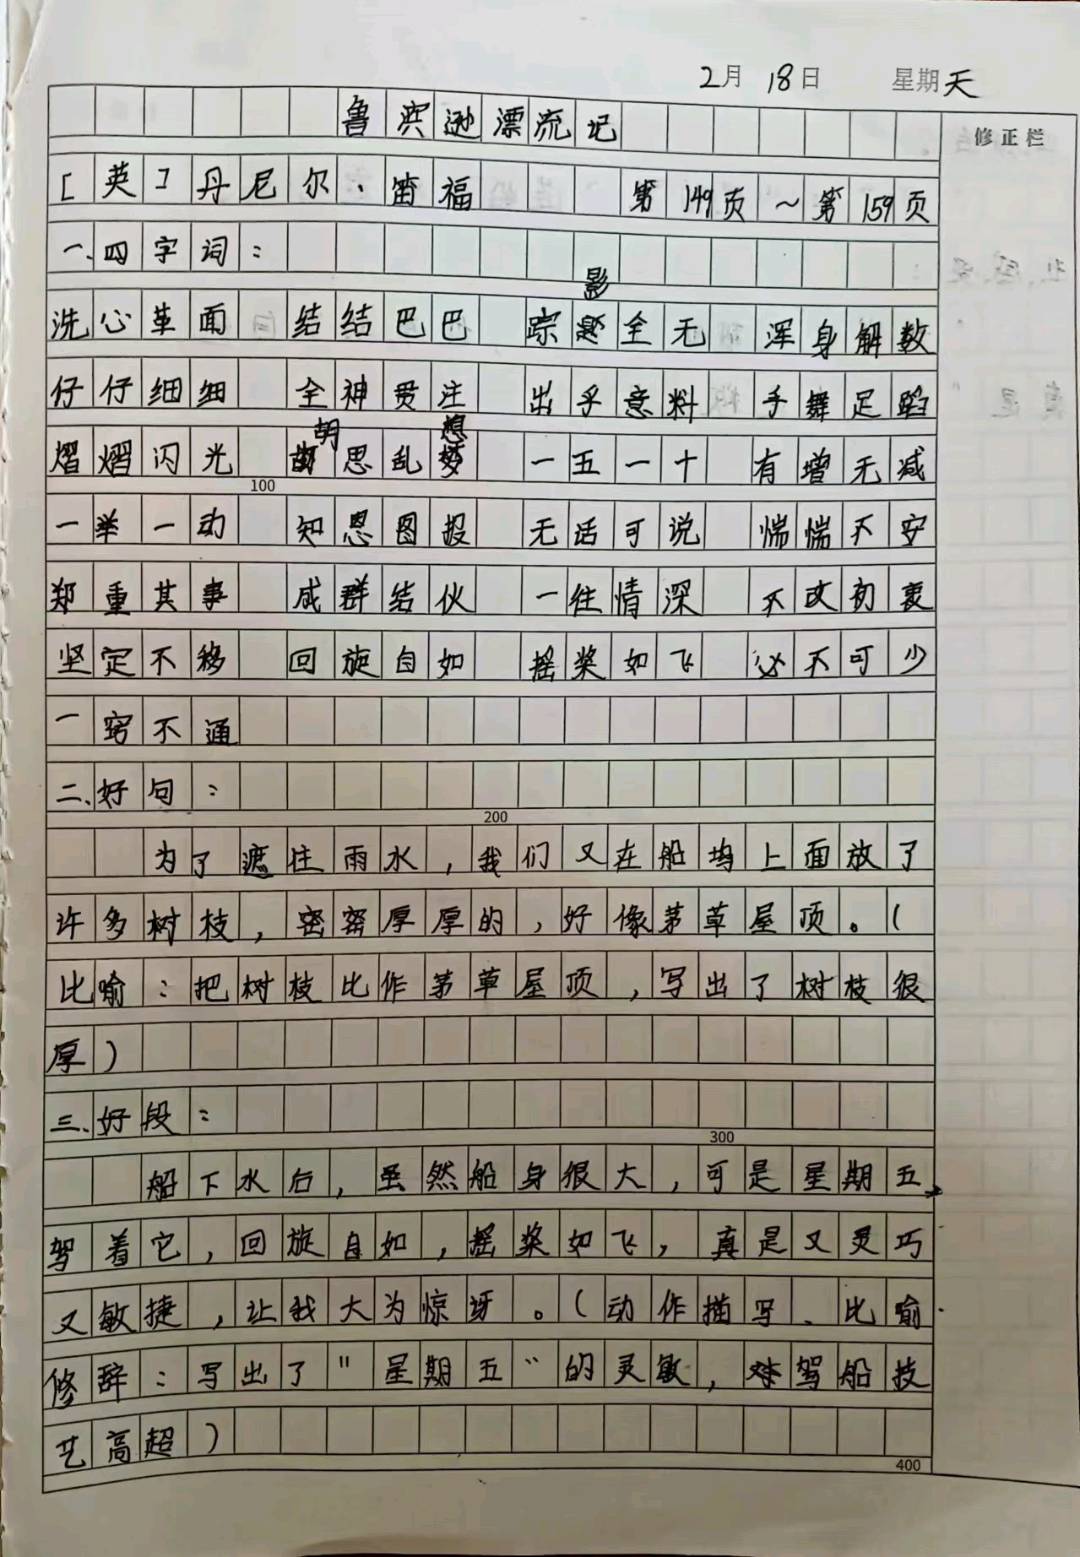 2月 18日 星期天
修正栏
鲁滨逊漂流记
[英]丹尼尔·笛福 第149页~第159页
一、四字词：
洗心革面 结结巴巴 踪影全无 浑身解数
仔仔细细 全神贯注 出乎意料 手舞足蹈
熠熠闪光 胡思乱想 一五一十 有增无减
100
一举一动 知恩图报 无话可说 惴惴不安
郑重其事 成群结伙 一往情深 不改初衷
坚定不移 回旋自如 摇桨如飞 必不可少
一窍不通
二、好句：
200
为了遮住雨水，我们又在船坞上面放了
许多树枝，密密厚厚的，好像茅草屋顶。(
比喻：把树枝比作茅草屋顶，写出了树枝很
厚)
三、好段：
300
船下水后，虽然船身很大，可是星期五
驾着它，回旋自如，摇桨如飞，真是又灵巧
又敏捷，让我大为惊讶。(动作描写、比喻
修辞：写出了"星期五"的灵敏，驾船技
艺高超)
400